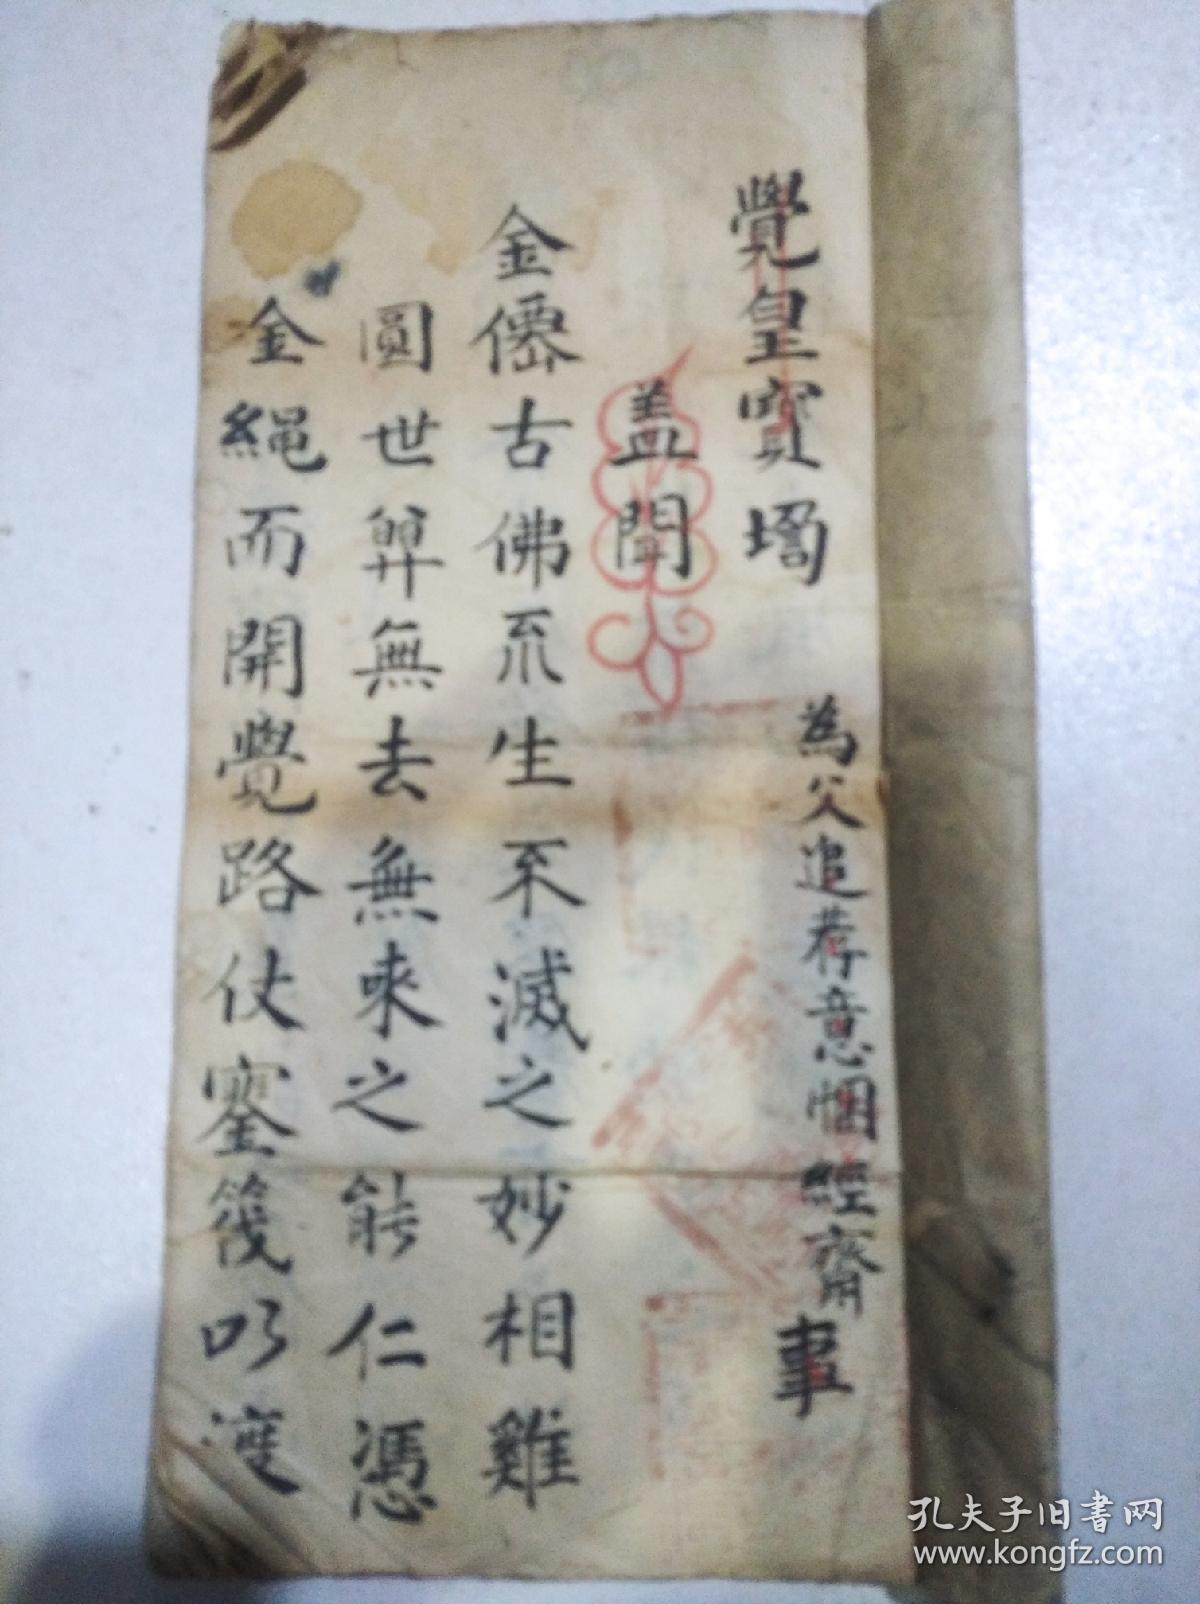 覺皇寶
為父追荐意悃經齋事
盖聞
金僊古佛不生不滅之妙相
圓世無去無來之能仁憑
金繩而開覺路仗寶筏以渡
孔夫子旧书网
www.kongfz.com